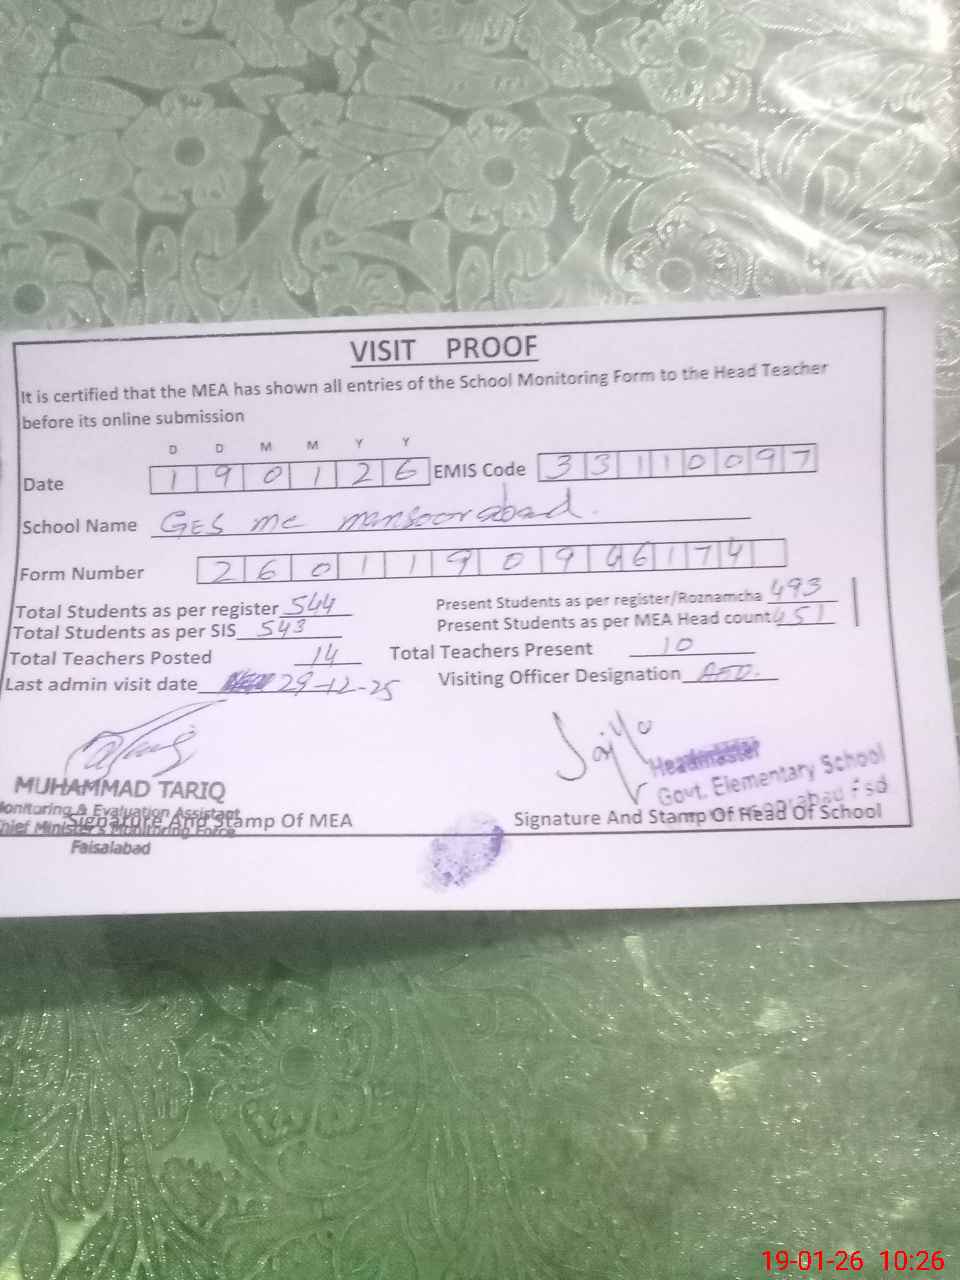 VISIT PROOF
It is certified that the MEA has shown all entries of the School Monitoring Form to the Head Teacher
before its online submission
D D M M Y Y
Date 1 9 0 1 2 6 EMIS Code 3 3 1 1 0 0 9 7
School Name GES mc mansoorabad.
Form Number 2 6 0 1 1 9 0 9 4 6 1 7 4
Total Students as per register 544 Present Students as per register/Roznamcha 493
Total Students as per SIS 543 Present Students as per MEA Head count 451
Total Teachers Posted 14 Total Teachers Present 10
Last admin visit date 29-12-25 Visiting Officer Designation
MUHAMMAD TARIQ
Monitoring & Evaluation Assistant
Chief Minister's Monitoring Force
Faisalabad
Signature And Stamp Of MEA
Headmaster
Govt. Elementary School
Fsd
Signature And Stamp Of Head Of School
19-01-26 10:26